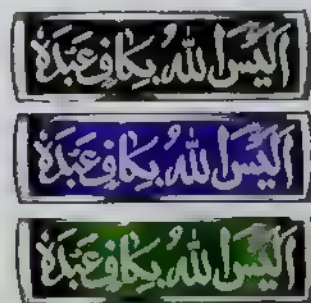 اَلَیْسَ اللهُ بِکَافٍ عَبْدَهٗ
اَلَیْسَ اللهُ بِکَافٍ عَبْدَهٗ
اَلَیْسَ اللهُ بِکَافٍ عَبْدَهٗ